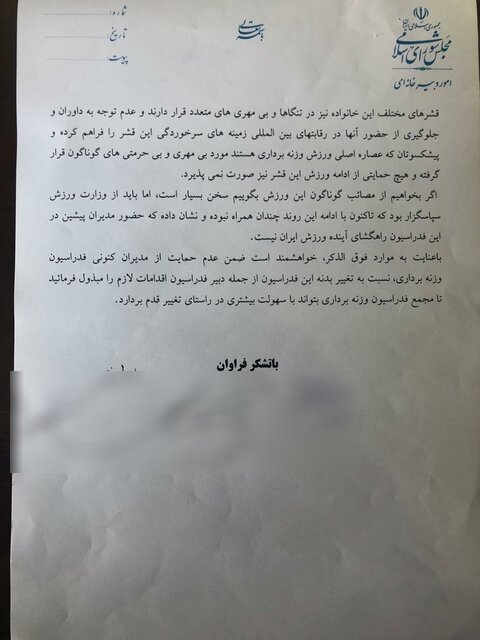 جمهوری اسلامی ایران
مجلس شورای اسلامی
امور دبیرخانه‌ای
باسمه تعالی
شماره:
تاریخ:
پیوست:
قشرهای مختلف این خانواده نیز در تنگاها و بی مهری های متعدد قرار دارند و عدم توجه به داوران و
جلوگیری از حضور آنها در رقابتهای بین المللی زمینه های سرخوردگی این قشر را فراهم کرده و
پیشکسوتان که عصاره اصلی ورزش وزنه برداری هستند مورد بی مهری و بی حرمتی های گوناگون قرار
گرفته و هیچ حمایتی از ادامه ورزش این قشر نیز صورت نمی پذیرد.
اگر بخواهیم از مصائب گوناگون این ورزش بگوییم سخن بسیار است، اما باید از وزارت ورزش
سپاسگزار بود که تاکنون با ادامه این روند چندان همراه نبوده و نشان داده که حضور مدیران پیشین در
این فدراسیون راهگشای آینده ورزش ایران نیست.
باعنایت به موارد فوق الذکر، خواهشمند است ضمن عدم حمایت از مدیران کنونی فدراسیون
وزنه برداری، نسبت به تغییر بدنه این فدراسیون از جمله دبیر فدراسیون اقدامات لازم را مبذول فرمائید
تا مجمع فدراسیون وزنه برداری بتواند با سهولت بیشتری در راستای تغییر قدم بردارد.
باتشکر فراوان